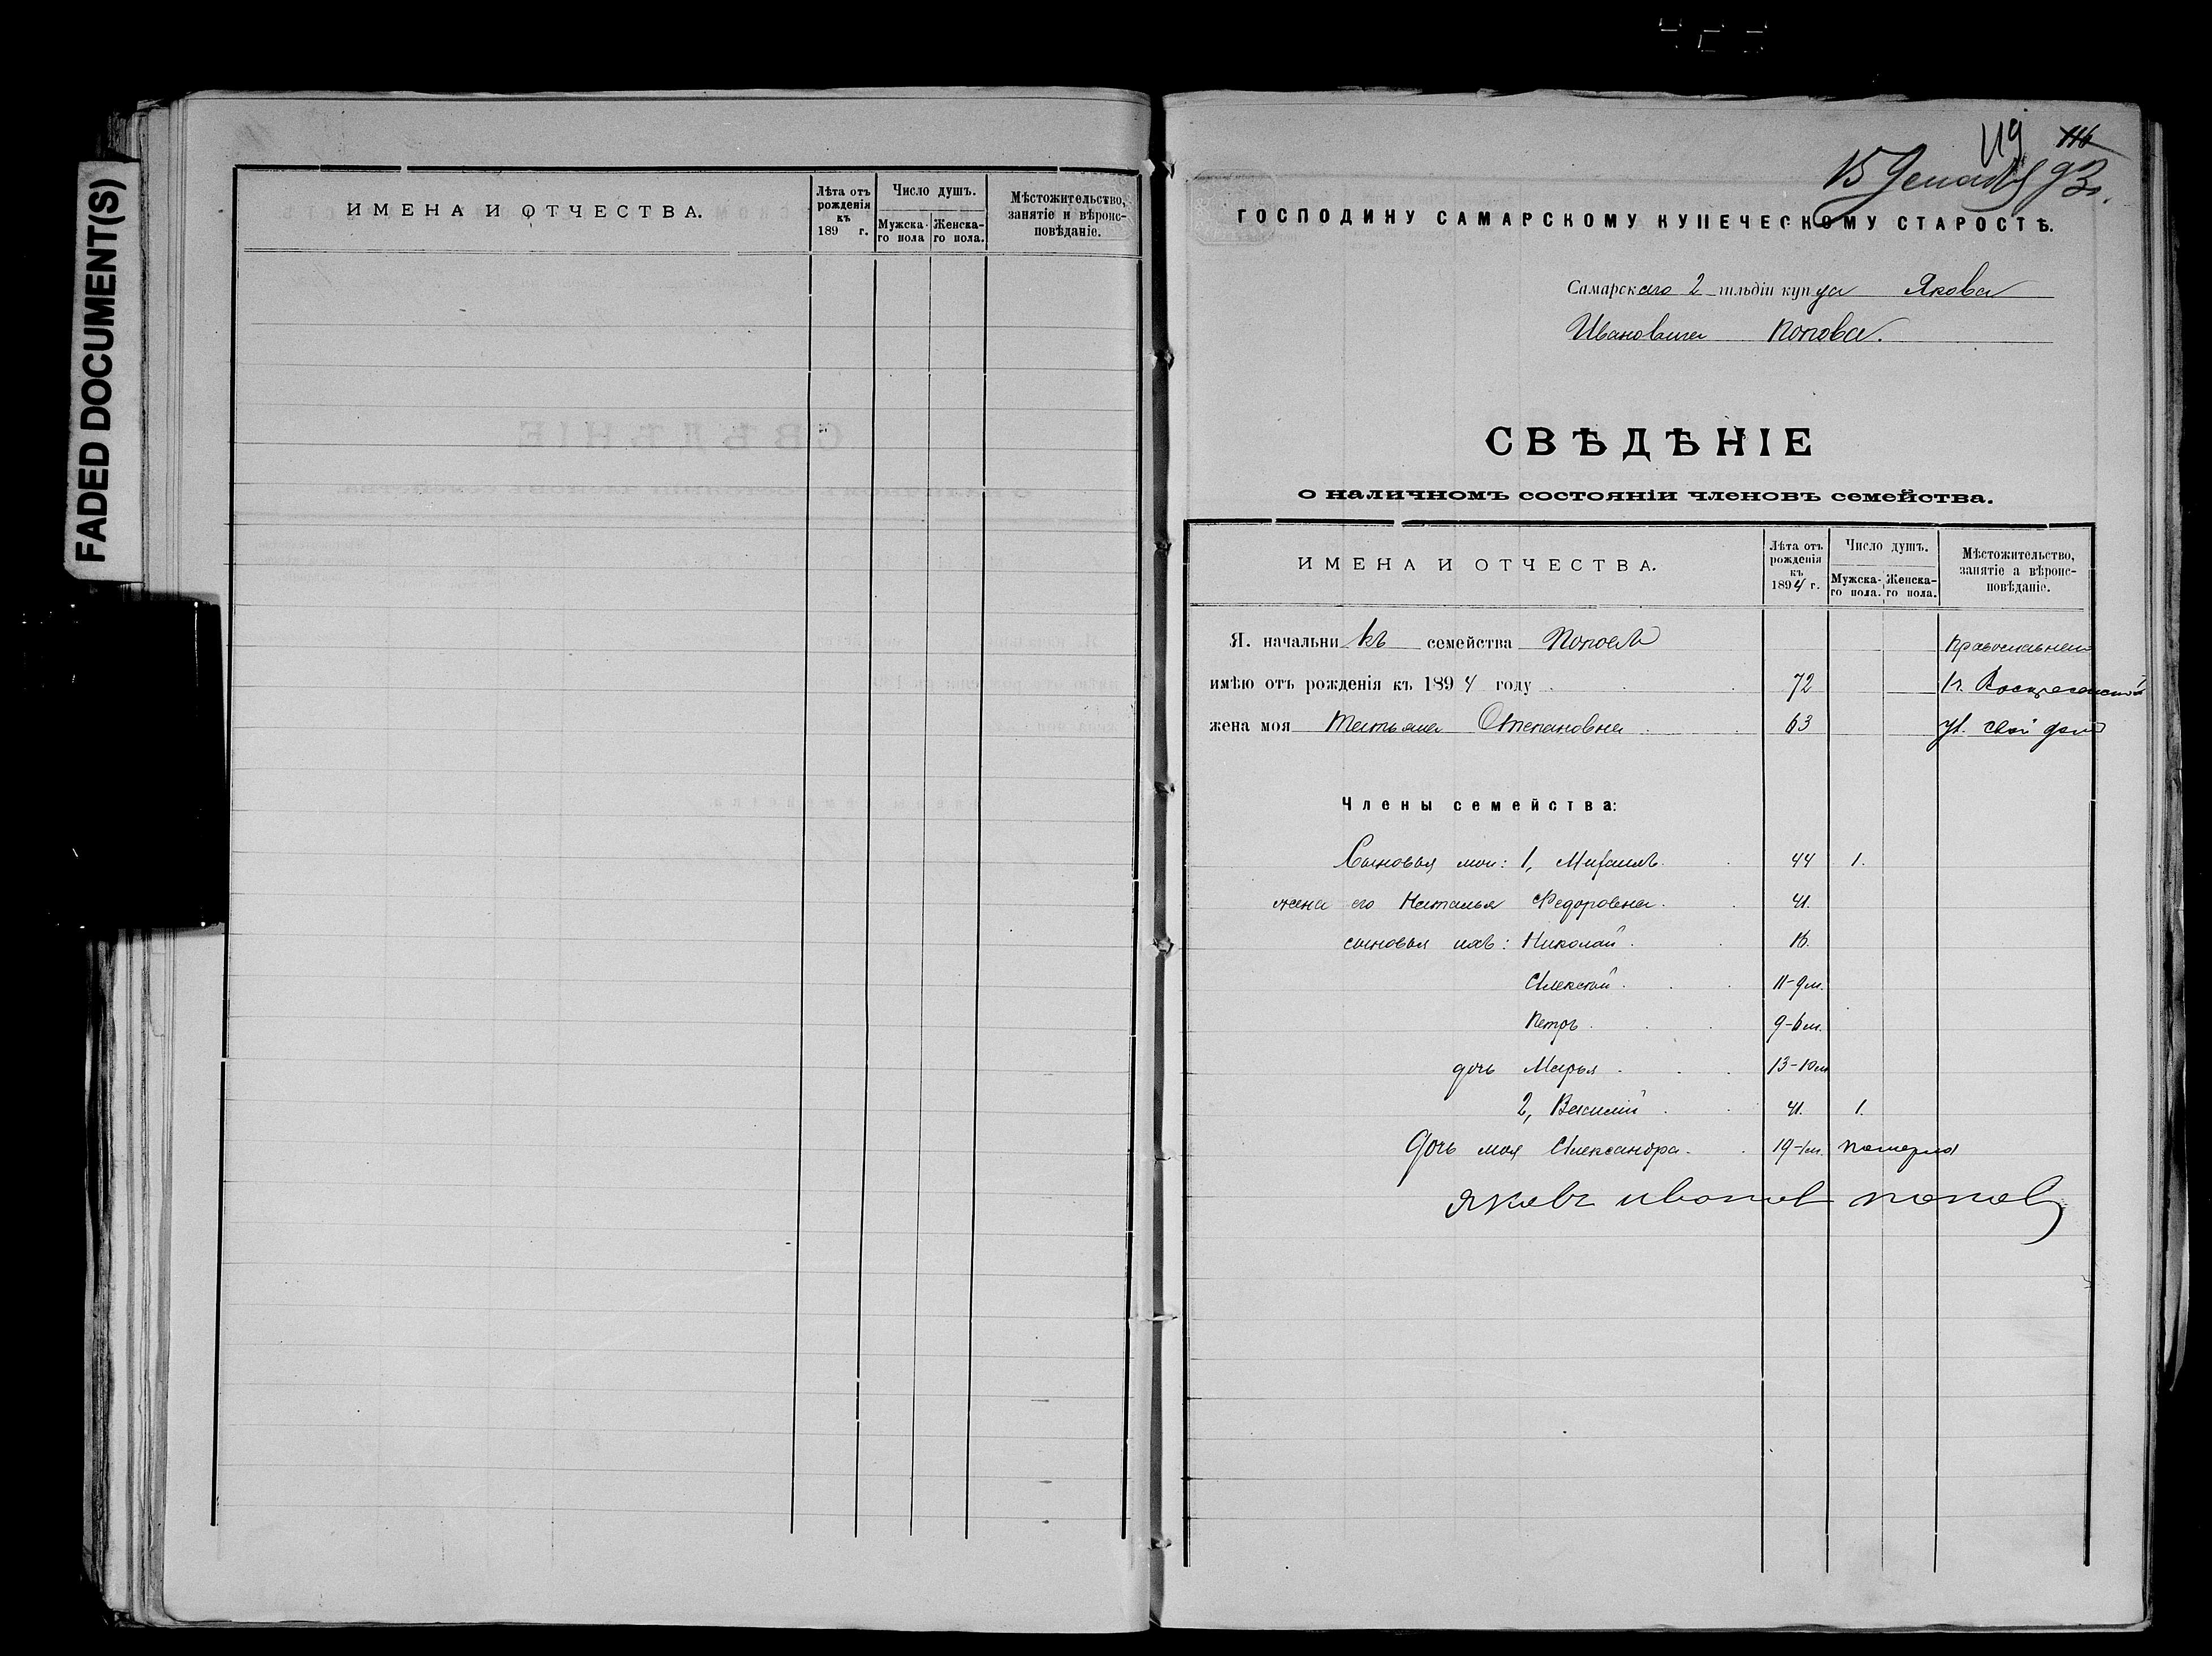 FADED DOCUMENT(S)
ИМЕНА И ОТЧЕСТВА.
Лѣта отъ рожденія къ 189 г.
Число душъ.
Мужска- го пола
Женска- го пола.
Мѣстожительство, занятіе и вѣроис- повѣданіе.
119 116
15 Декабря 93 г.
ГОСПОДИНУ САМАРСКОМУ КУПЕЧЕСКОМУ СТАРОСТѢ.
Самарскаго 2 гильдіи купца Якова
Ивановича Попова.
СВѢДѢНІЕ
о наличномъ состояніи членовъ семейства.
ИМЕНА И ОТЧЕСТВА.
Лѣта отъ рожденія къ 1894 г.
Число душъ.
Мужска- го пола.
Женска- го пола.
Мѣстожительство, занятіе а вѣроис- повѣданіе.
Я. начальникъ семейства Поповъ Православнаго
имѣю отъ рожденія къ 1894 году 72 Воскресенской
жена моя Татьяна Степановна 63 ул. свой домъ
Члены семейства:
Сыновья мои: 1, Михаилъ 44 1.
жена его Наталья Федоровна. 41.
сыновья ихъ: Николай 16.
Алексѣй 11-9 м.
Петръ 9-6 м.
дочь Марья 13-10 м
2, Василій 41. 1.
Дочь моя Александра. 19-1 м. померла
Яковъ ивановъ поповъ